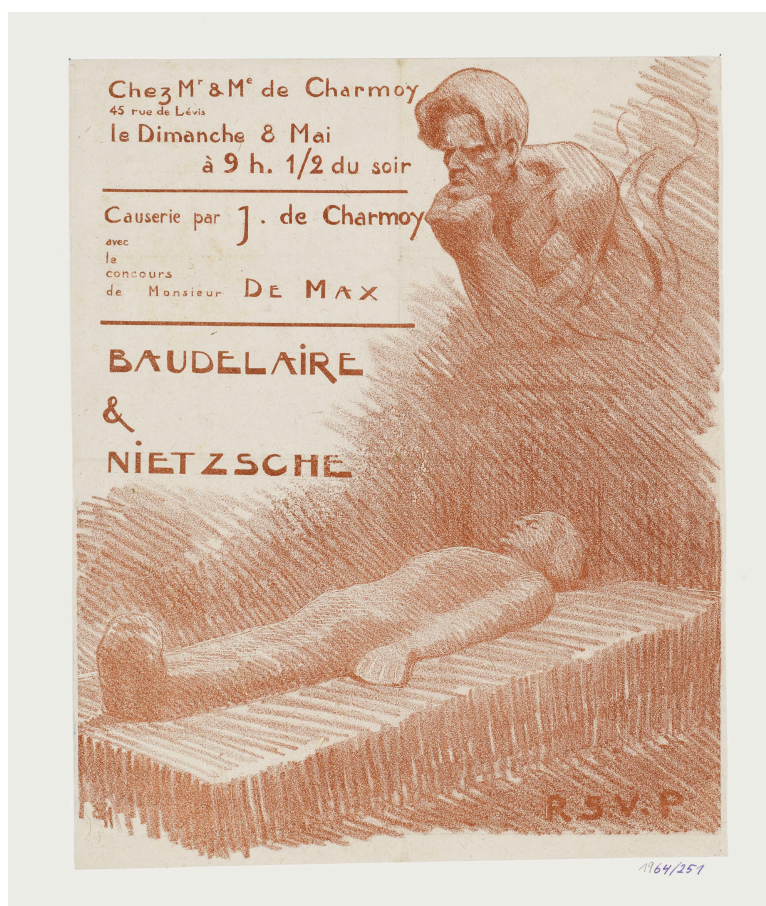 Chez Mr & Me de Charmoy
45 rue de Lévis
le Dimanche 8 Mai
à 9 h. 1/2 du soir
Causerie par J. de Charmoy
avec
le
concours
de Monsieur DE MAX
BAUDELAIRE
&
NIETZSCHE
R.S.V.P
1964/251